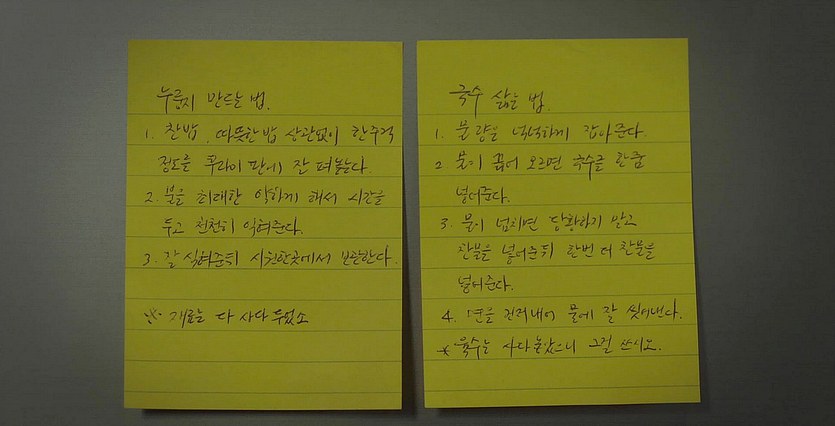 누룽지 만드는 법.
1. 찬밥, 따뜻한 밥 상관없이 한주걱
정도를 후라이 판에 잘 펴놓는다.
2. 불을 최대한 약하게 해서 시간을
두고 천천히 익혀준다.
3. 잘 식혀준뒤 시원한곳에서 보관한다.
※ 재료는 다 사다 두었소
국수 삶는 법.
1. 물 량을 넉넉하게 잡아준다.
2. 물이 끓어 오르면 국수를 한줌
넣어준다.
3. 물이 넘치면 당황하지 말고
찬물을 넣어준뒤 한번 더 찬물을
넣어준다.
4. 면을 건져내어 물에 잘 씻어낸다.
* 육수는 사다 놓았으니 그걸 쓰시오.